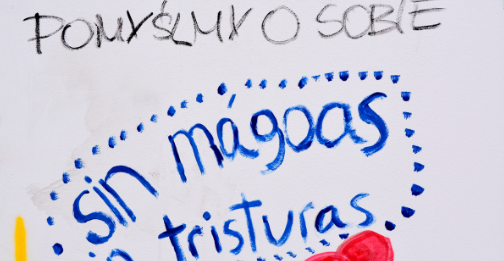 POMYŚLMY O SOBIE
sin mágoas
tristuras